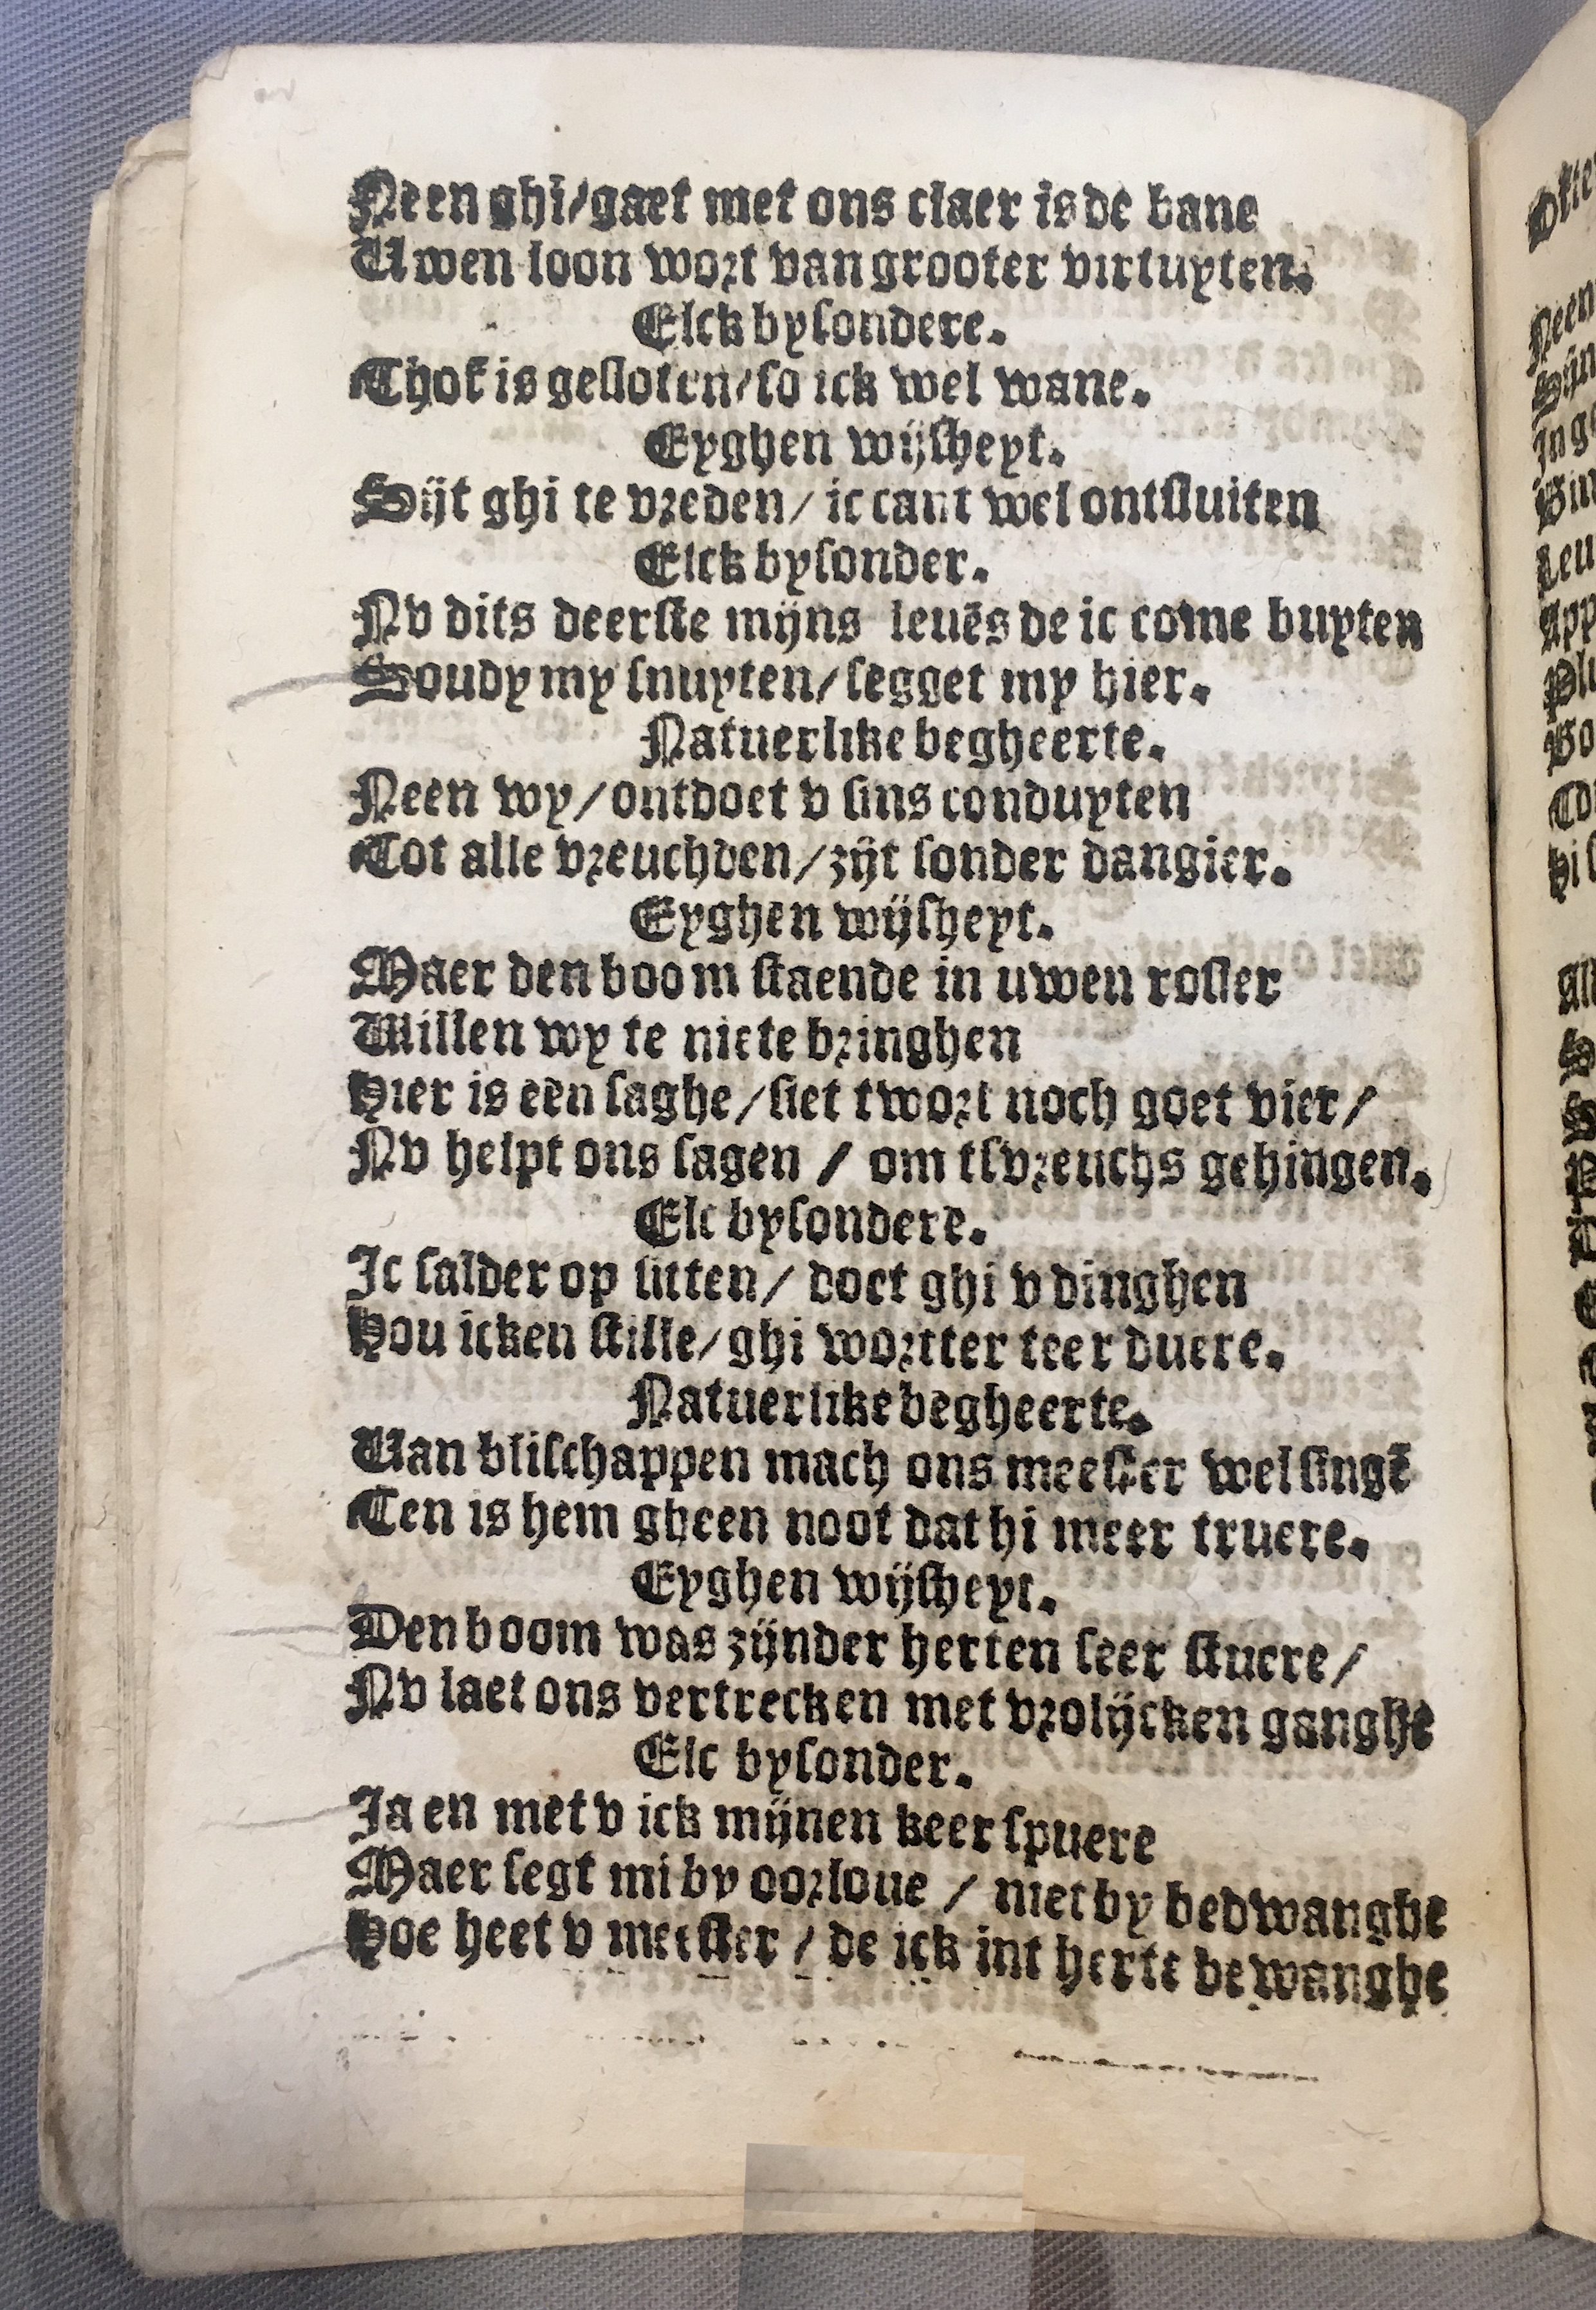 Neen ghi/gaet met ons claer is de bane
Uwen loon wort van grooter virtuyten.
Elck bysondere.
Thof is gesloten/so ick wel wane.
Eyghen wijsheyt.
Sijt ghi te vreden/ ic cant wel ontsluiten
Elck bysonder.
Nv dits deerste mijns leuēs de ic come buyten
Soudy my snuyten/segget my hier.
Natuerlike begheerte.
Neen wy/ontdoet v sins conduyten
Tot alle vreuchden/zijt sonder dangier.
Eyghen wijsheyt.
Maer den boom staende in uwen rosier
Willen wy te niete bringhen
Hier is een saghe/siet twort noch goet vier/
Nv helpt ons sagen / om tsvreuchs gehingen.
Elc bysondere.
Ic salder op sitten/ doet ghi v dinghen
Hou icken stille/ghi wortter teer duere.
Natuerlike begheerte.
Uan blischappen mach ons meester wel singē
Ten is hem gheen noot dat hi meer truere.
Eyghen wijsheyt.
Den boom was zijnder herten seer stuere/
Nv laet ons vertrecken met vrolijcken ganghe
Elc bysonder.
Ja en met v ick mijnen keer spuere
Maer segt mi by oorloue / niet by bedwanghe
Hoe heet v meester / de ick int herte bewanghe